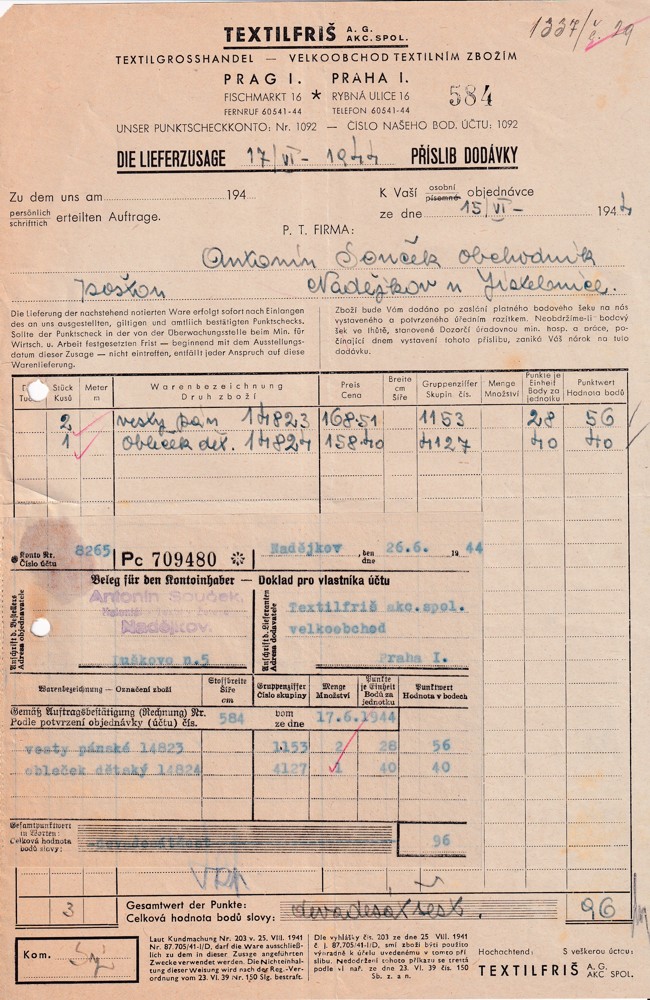 1337/č. 29
TEXTILFRIŠ A. G. AKC. SPOL.
TEXTILGROSSHANDEL — VELKOOBCHOD TEXTILNÍM ZBOŽÍM
PRAG I. PRAHA I.
FISCHMARKT 16 * RYBNÁ ULICE 16
584
FERNRUF 60541-44 TELEFON 60541-44
UNSER PUNKTSCHECKKONTO: Nr. 1092 — ČÍSLO NAŠEHO BOD. ÚČTU: 1092
DIE LIEFERZUSAGE 17/VI - 1944 PŘÍSLIB DODÁVKY
Zu dem uns am 194
persönlich
schriftlich erteilten Auftrage.
K Vaší osobní písemné objednávce
ze dne 15/VI - 1944
P. T. FIRMA:
Antonín Souček obchodník
Nadějkov u Jistebnice.
Die Lieferung der nachstehend notierten Ware erfolgt sofort nach Einlangen
des an uns ausgestellten, giltigen und amtlich bestätigten Punktschecks.
Sollte der Punktscheck in der von der Überwachungsstelle beim Min. für
Wirtsch. u. Arbeit festgesetzten Frist — beginnend mit dem Ausstellungs-
datum dieser Zusage — nicht eintreffen, entfällt jeder Anspruch auf diese
Warenlieferung.
Zboží bude Vám dodáno po zaslání platného bodového šeku na nás
vystaveného a potvrzeného úředním razítkem. Neobdržíme-li bodový
šek ve lhůtě, stanovené Dozorčí úřadovnou min. hosp. a práce, po-
čínající dnem vystavení tohoto příslibu, zaniká Váš nárok na tuto
dodávku.
Stück Kusů Meter m Warenbezeichnung Druh zboží Preis Cena Breite cm Šíře Gruppenziffer Skupin. čís. Menge Množství Punkte je Einheit Body za jednotku Punktwert Hodnota bodů
2 vesty pán 14823 168.51 1153 28 56
1 obleček dět. 14824 158.40 4127 40 40
Konto Nr. Číslo účtu 8265 Pc 709480 Nadějkov, den dne 26.6. 1944
Beleg für den Kontoinhaber — Doklad pro vlastníka účtu
Anschrift d. Bestellers
Adresa objednavatele
Antonín Souček,
Nadějkov.
n.5
Anschrift d. Lieferanten
Adresa dodavatele
Textilfriš akc.spol.
velkoobchod
Praha I.
Warenbezeichnung — Označení zboží Stoffbreite Šíře cm Gruppenziffer Číslo skupiny Menge Množství Punkte je Einheit Bodů za jednotku Punktwert Hodnota v bodech
Gemäß Auftragsbestätigung (Rechnung) Nr.
Podle potvrzení objednávky (účtu) čís. 584 vom ze dne 17.6.1944
vesty pánské 14823 1153 2 28 56
obleček dětský 14824 4127 1 40 40
Gesamtpunktwert in Worten:
Celková hodnota bodů slovy: 96
3 Gesamtwert der Punkte:
Celková hodnota bodů slovy: devadesátšest. 96
Kom.
Laut Kundmachung Nr. 203 v. 25. VIII. 1941
Nr. 87.705/41-I/D, darf die Ware ausschließ-
lich zu dem in dieser Zusage angeführten
Zwecke verwendet werden. Die Nichteinhal-
tung dieser Weisung wird nach der Reg.-Ver-
ordnung vom 23. VI. 39 Nr. 150 Slg. bestraft.
Dle vyhlášky čís. 203 ze dne 25. VIII. 1941
č. j. 87.705/41-I/D, smí zboží býti použito
výhradně k účelu uvedenému v tomto pří-
slibu. Nedodržení tohoto příkazu se trestá
podle vl. nař. ze dne 23. VI. 39 čís. 150
Sb. z. a n.
Hochachtend: S veškerou úctou:
TEXTILFRIŠ A. G. AKC SPOL.